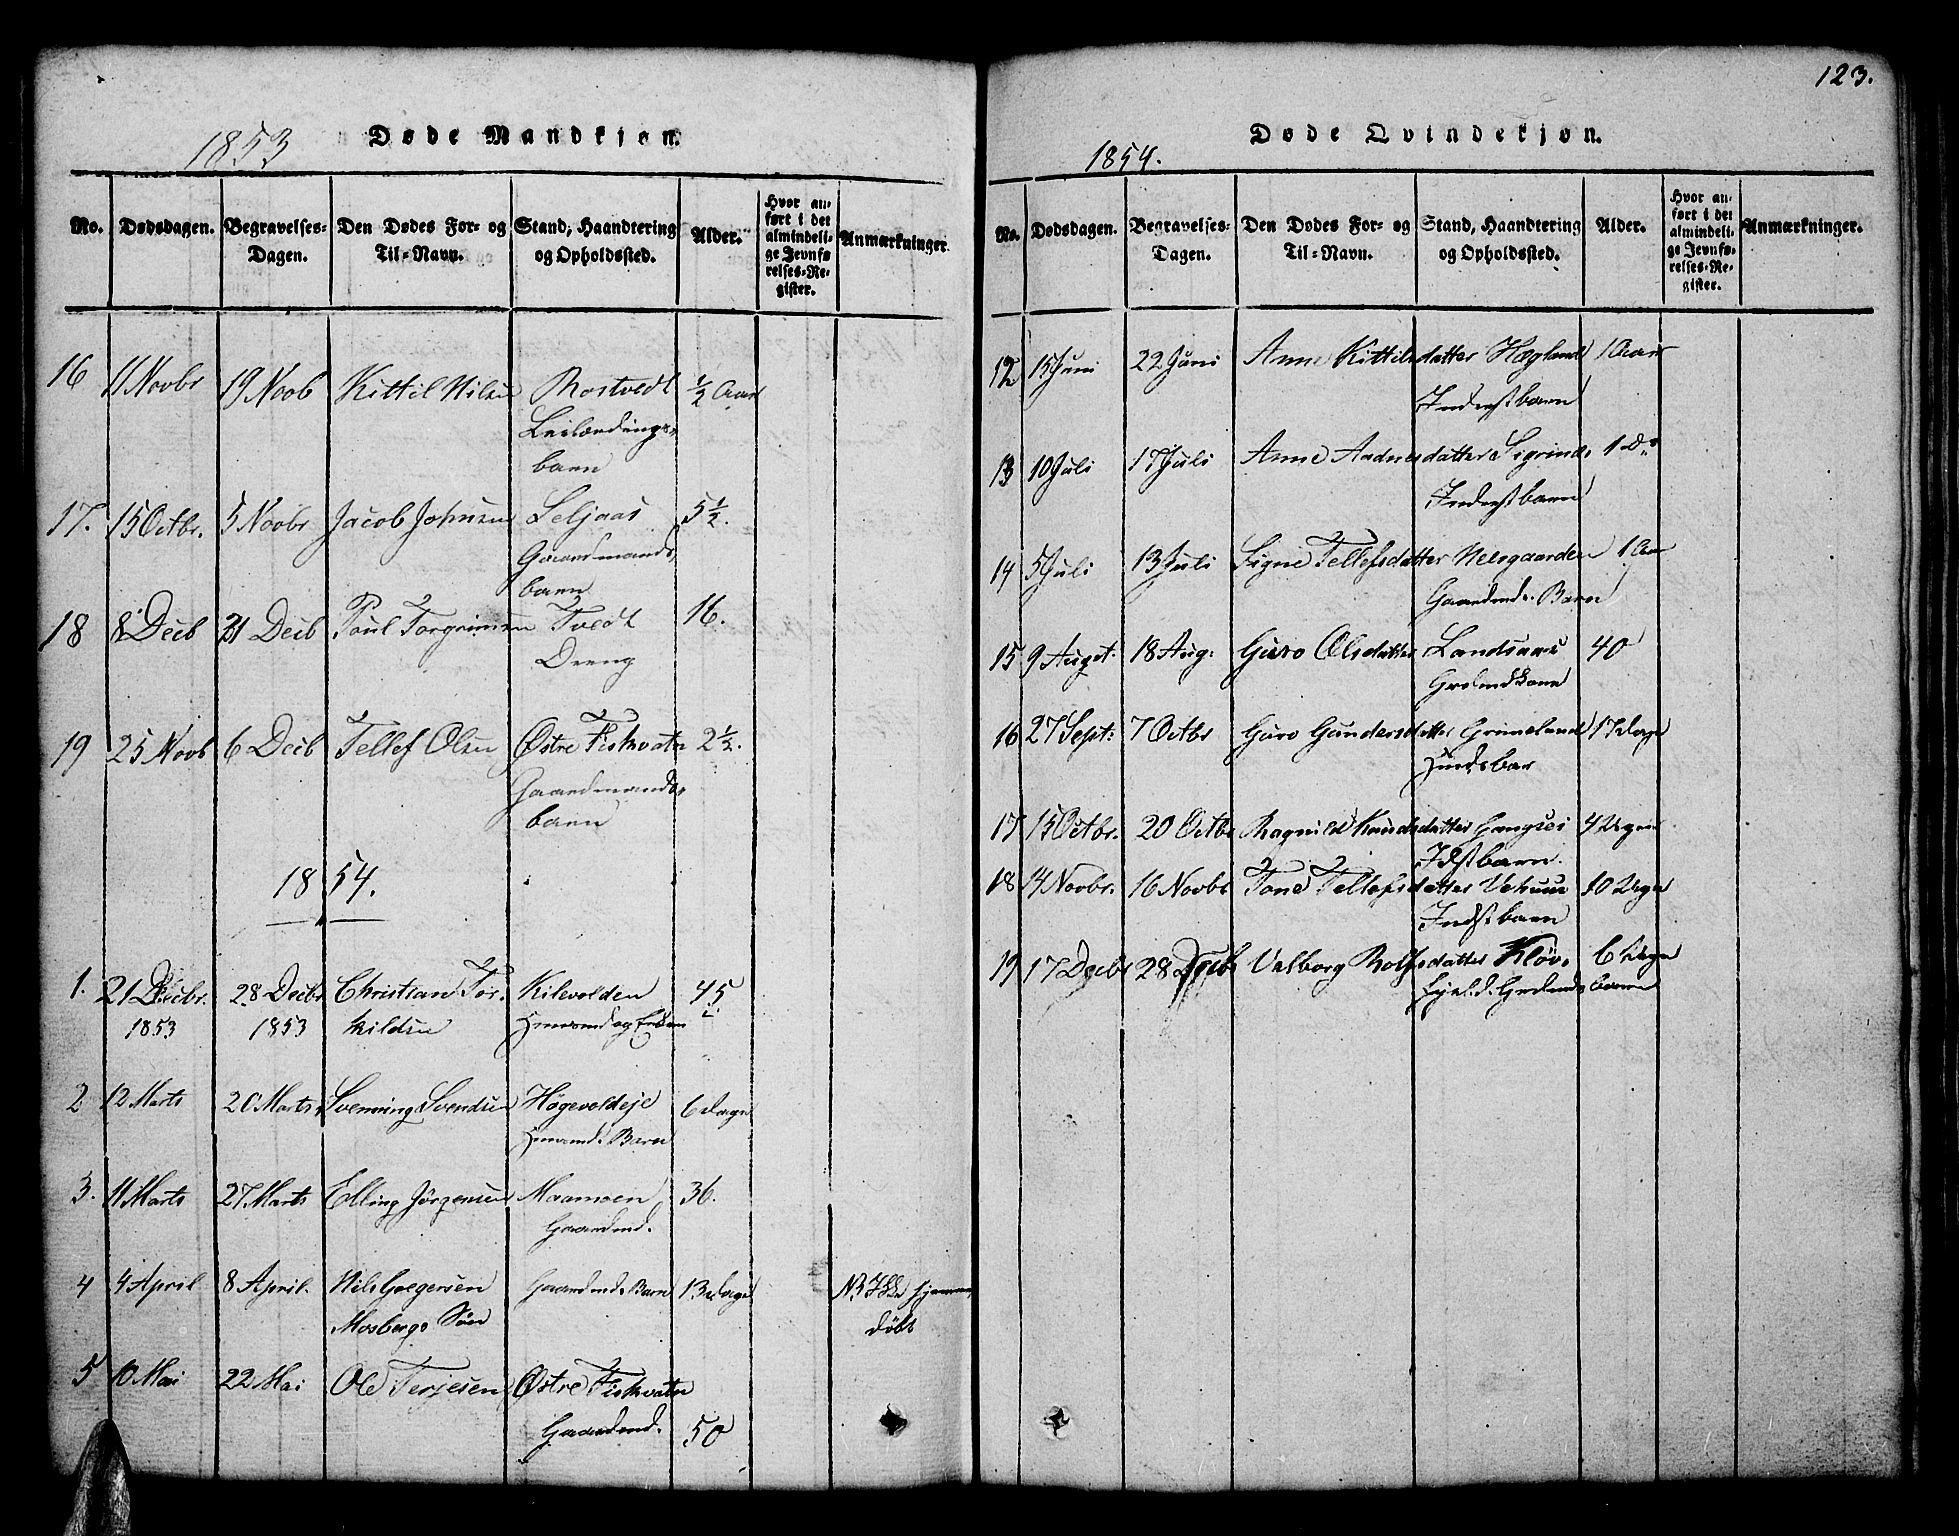 123.
1853 Døde Mandkjøn.
No. Dødsdagen. Begravelses-Dagen. Den Dødes For- og Til-Navn. Stand, Haandtering og Opholdssted. Alder. Hvor anført i det almindelige Jevnførelses-Register. Anmærkninger
16 11 Novbr 19 Novb Kittil Nilsen Rostvedt ½ Aar
Leilændings-
barn
17. 15 Octbr. 5 Novbr Jacob Johnsen Seljaas 5½.
Gaardmands
barn
18 8 Decb 21 Decb Poul Torgrimsen Tvedt 16.
Dreng
19 25 Novb 6 Decb Tellef Olsen Østre Fiskvatn 2½.
Gaardmands
barn
1854.
1. 21 Decbr. 28 Decbr Christian Tor- Kilevolden 45
1853 1853 kildsen
2 12 Marts 20 Marts Svenning Svendsen Høgevoldeje 6 Dage
Husmands Barn
3. 11 Marts 27 Marts Elling Jørgensen Maamoen 36.
Gaardmd.
4 4 April 8 April. Nils Gregersen Gaardmds Barn 13 Dage hjemme
Mosbergs Søn døbt
5 10 Mai 22 Mai Ole Terjesen Østre Fiskvatn
Gaardmd. 50
1854. Døde Qvindekjøn.
No. Dødsdagen. Begravelses-Dagen. Den Dødes For- og Til-Navn. Stand, Haandtering og Opholdssted. Alder. Hvor anført i det almindelige Jevnførelses-Register. Anmærkninger.
12 15 Juni 22 Juni Anne Kittilsdatter Hægland 1 Aar
Inderstbarn
13 10 Juli 17 Juli Anne Aadnesdatter 1 Do
Inderstbarn
14 5 Juli 13 Juli Signe Tellefsdatter Neesgaarden 1 Aar
Gaardmds. Barn
15 9 Augst. 18 Aug: Guro Olsdatter Landsaas 40
16 27 Sept: 7 Octbr Guro Gundersdatter Grimeland 17 Dage
17 15 Octbr. 20 Octbr Ragnild Knudsdatter Gangsei 4 Uger
Idstbarn.
18 4 Novbr. 16 Novbr Tone Tellefsdatter 10 Uger
Indstbarn
19 17 Decbr 28 Decb Valborg Rolfsdatter Kløv- 6 Uger
barn